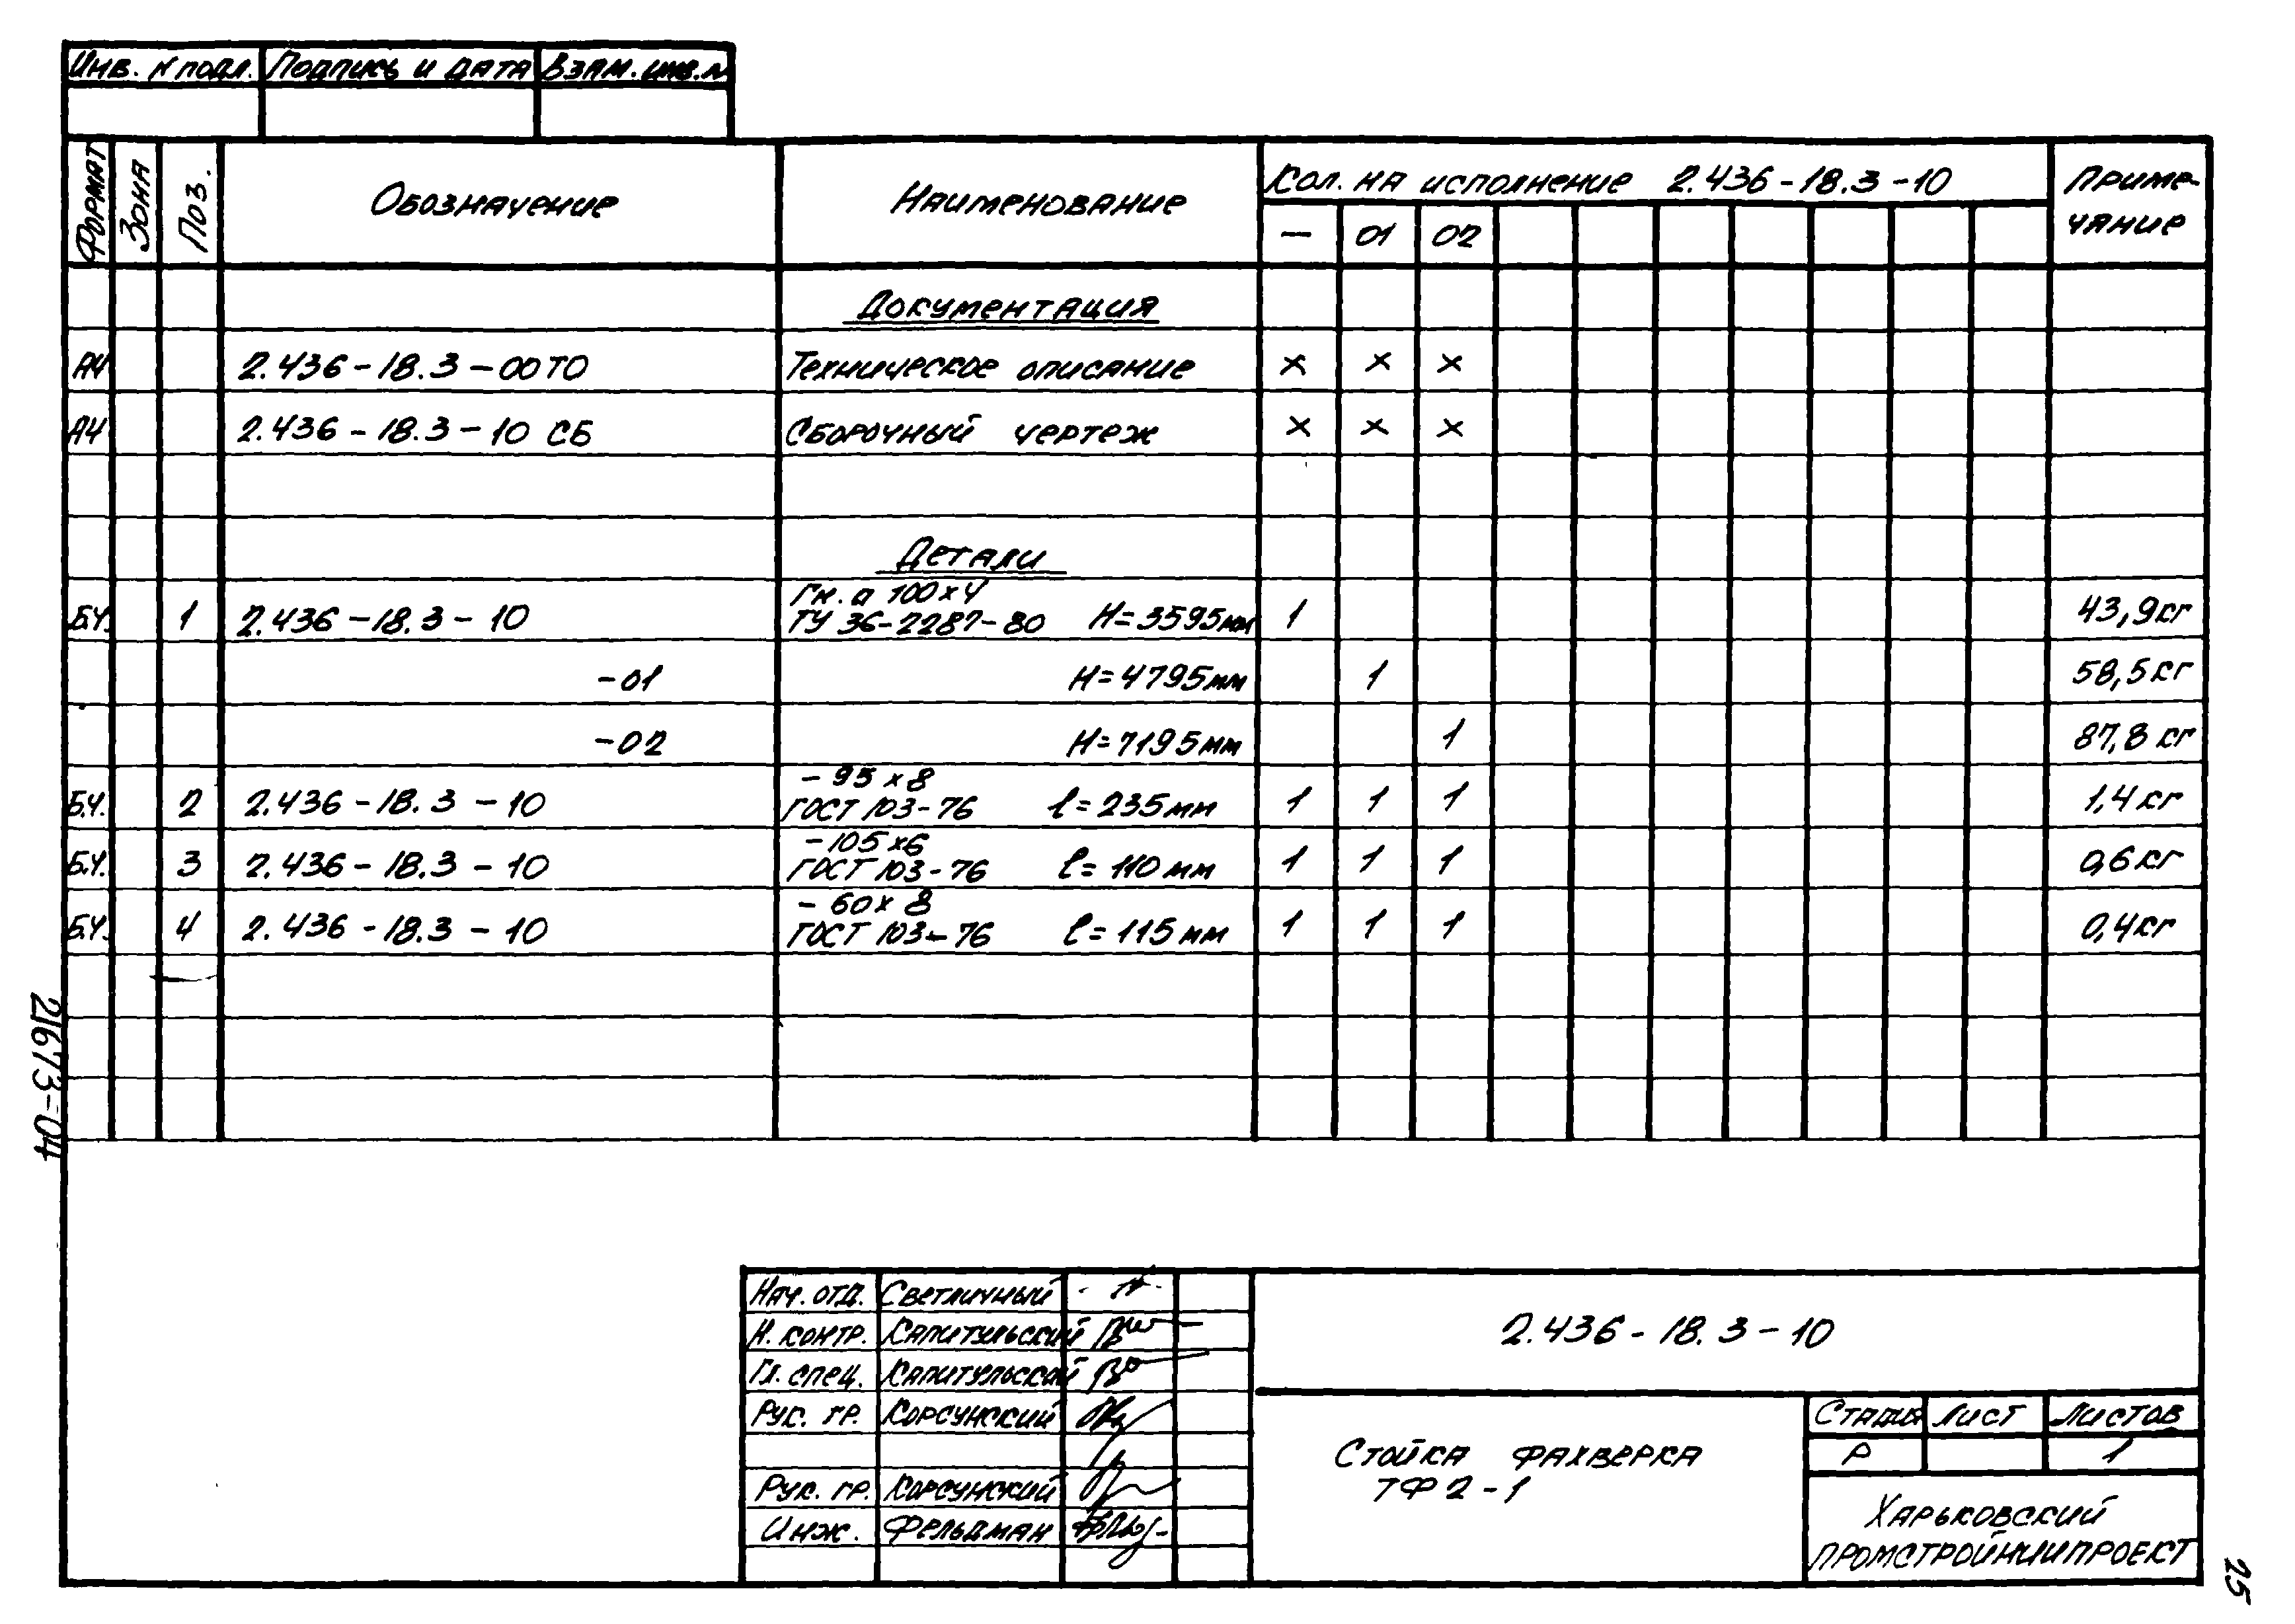 Инв. N подл. Подпись и дата Взам. инв. N
Формат Зона Поз. Обозначение Наименование Кол. на исполнение 2.436-18.3-10 Приме-
чание
— 01 02
Документация
А4 2.436-18.3-00ТО Техническое описание x x x
А4 2.436-18.3-10 СБ Сборочный чертеж x x x
Детали
Гн. □ 100x4
Б.Ч. 1 2.436-18.3-10 ТУ 36-2287-80 H=3595мм 1 43,9кг
-01 H=4795мм 1 58,5кг
-02 H=7195мм 1 87,8кг
- 95x8
Б.Ч. 2 2.436-18.3-10 ГОСТ 103-76 ℓ=235мм 1 1 1 1,4кг
- 105x6
Б.Ч. 3 2.436-18.3-10 ГОСТ 103-76 ℓ=110мм 1 1 1 0,6кг
- 60x8
Б.Ч. 4 2.436-18.3-10 ГОСТ 103-76 ℓ=115мм 1 1 1 0,4кг
21673-04
Нач. отд. Светличный
Н. контр. Капитульский
Гл. спец. Капитульский
Рук. гр. Корсунский
Рук. гр. Корсунский
Инж. Фельдман
2.436-18.3-10
Стойка фахверка
ТФ2-1
Стадия Лист Листов
Р 1
Харьковский
ПромстройНИИпроект
25